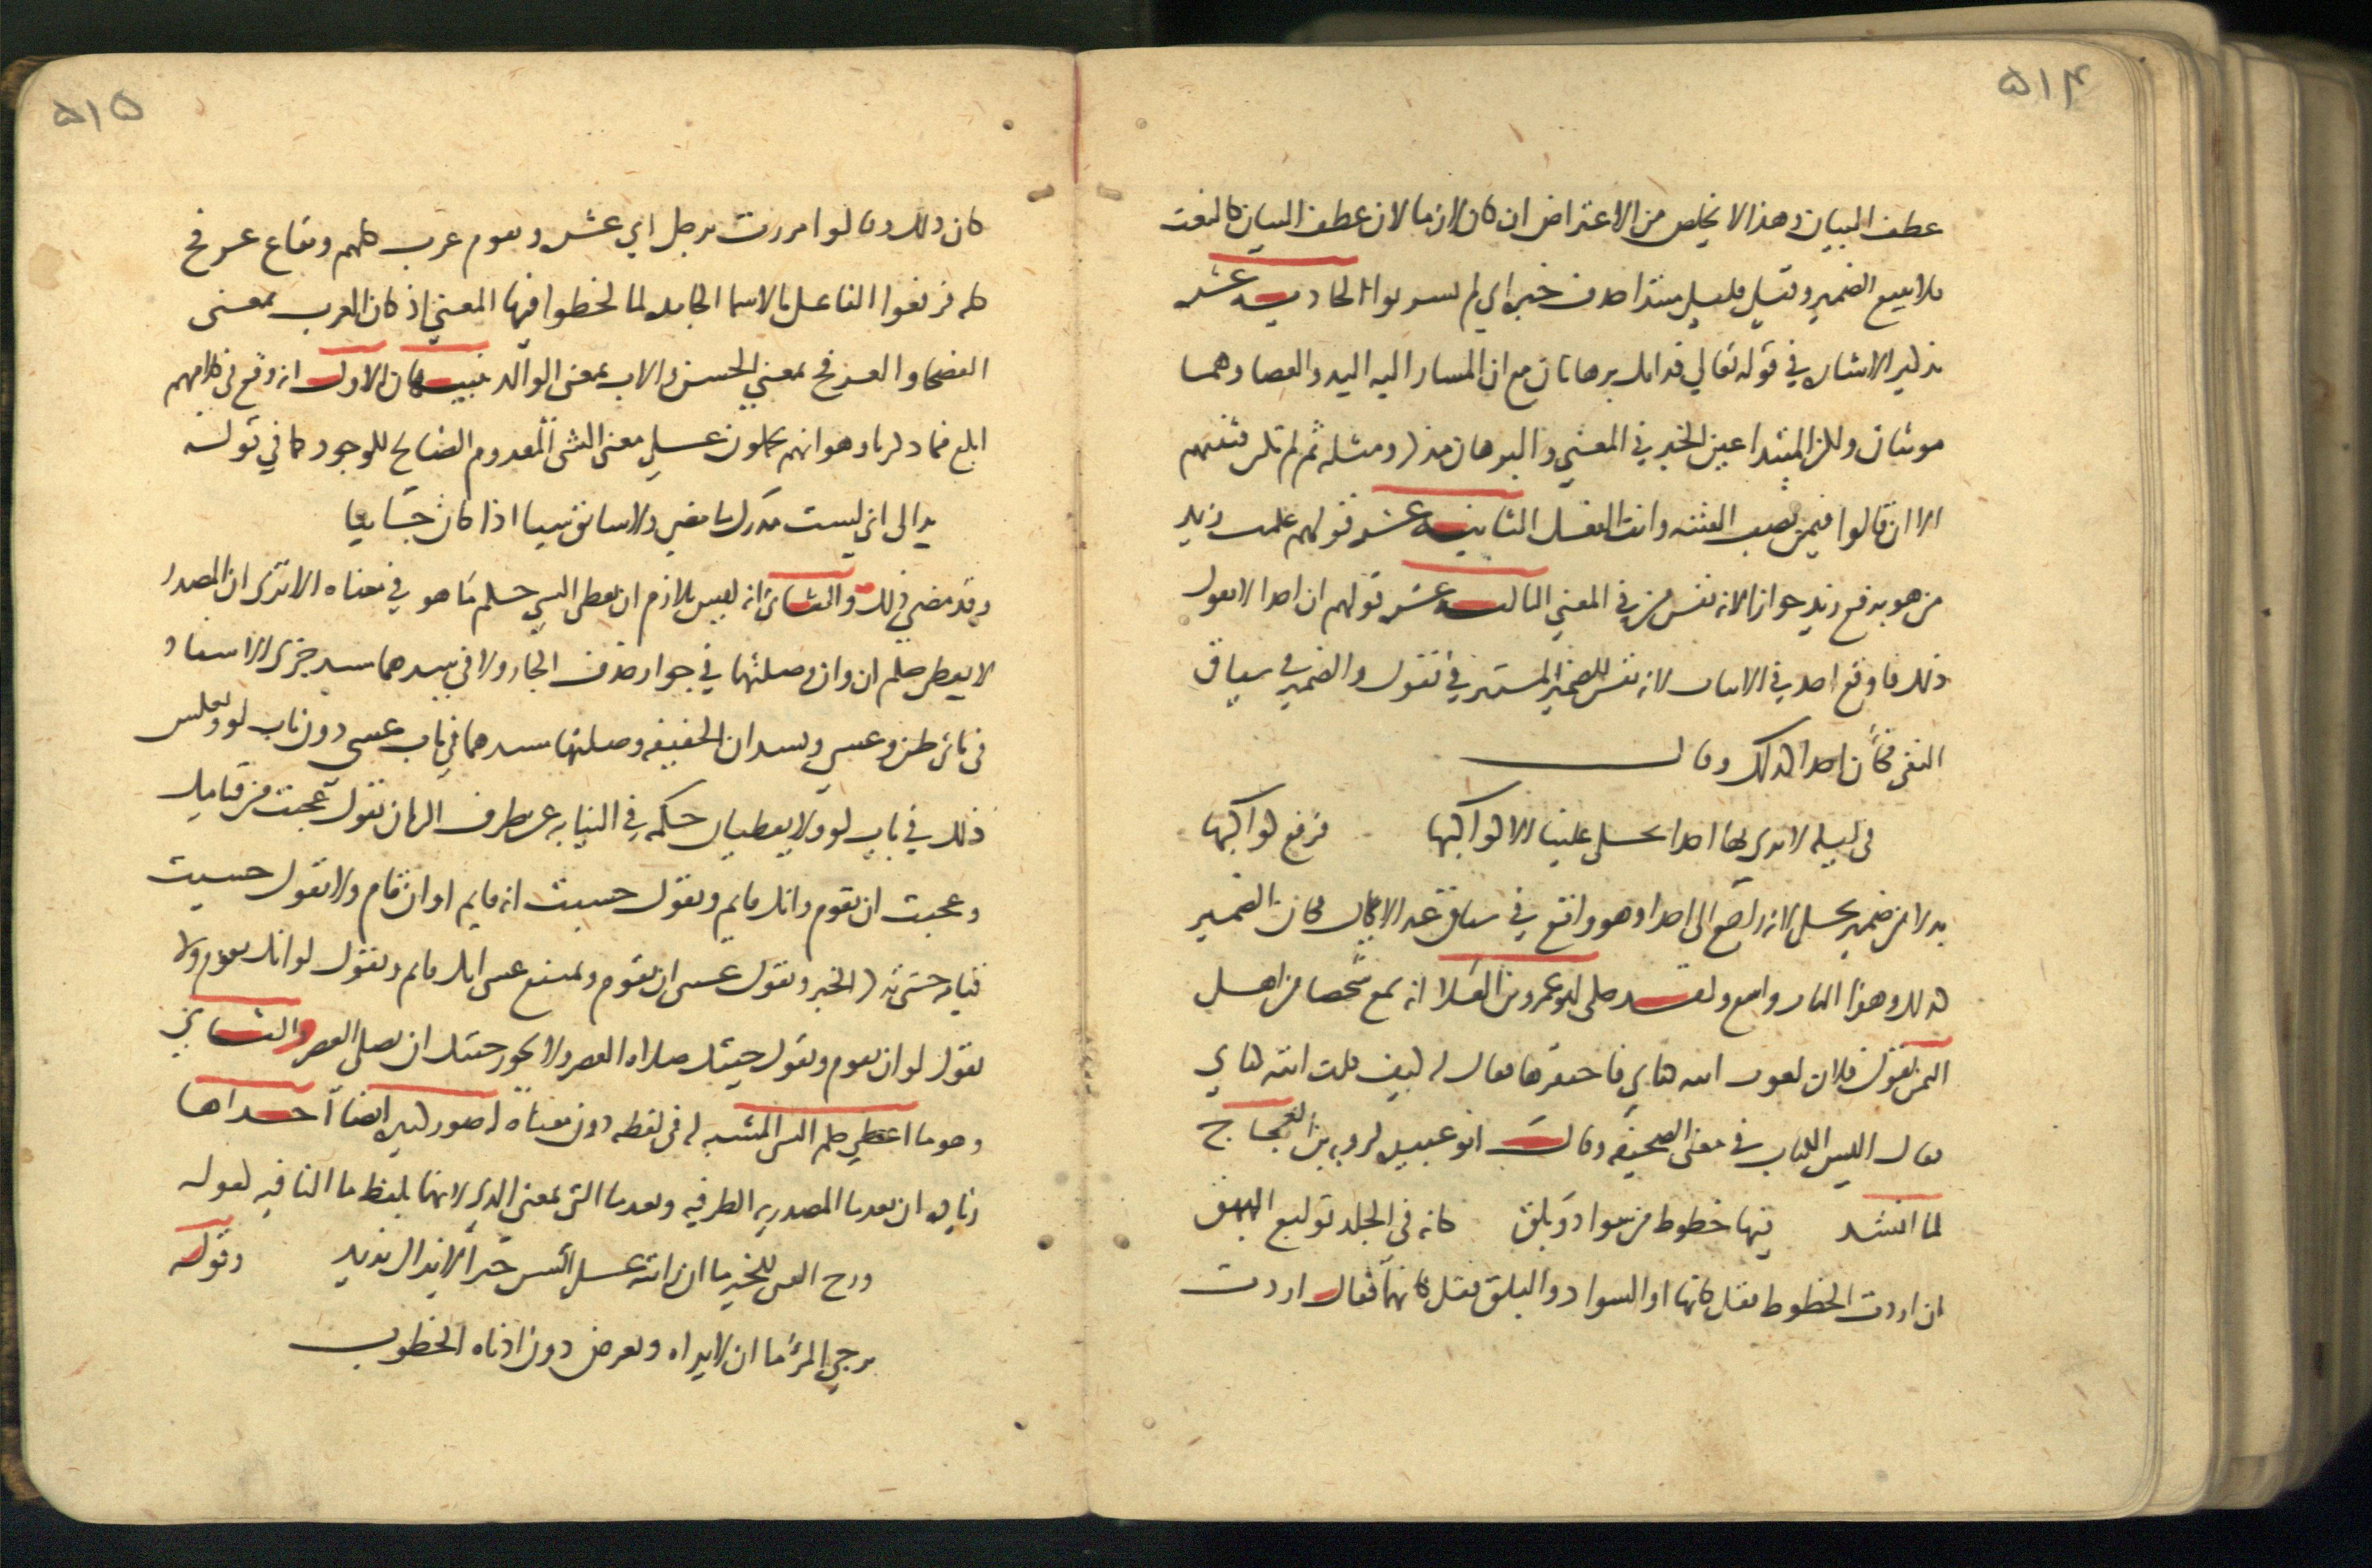 ٥١٤
عطف البيان وهذا لا يخلص من الاعتراض ان كان لازما لان عطف البيان كالنعت
فلا يتبع الضمير وقيل قليل مبتدا حذف خبره اي لم يشربوا الحادية عشر
تذكير الاشارة في قوله تعالي فذانك برهانان مع ان المشار اليه اليد والعصا وهما
مونثان ولكن المبتدا عين الخبر في المعني والبرهان مذكر ومثله ثم لم تكن فتنتهم
الا ان قالوا فيمن نصب الفتنه وانث الفعل الثانية عشر قولهم علمت زيد
من هو برفع زيد جوازا لانه نفس من في المعني الثالثة عشر قولهم ان احدا لا يقول
ذلك فاوقع احد في الاثبات لانه نفس الضمير المستتر في تقول والضمير في سياق
النفي فكأن احدا كذلك وقال
في ليلة لا نري بها احدا يحكي علينا الا كواكبها فرفع كواكبها
بدلا من ضمير يحكي لانه راجع الى احدا وهو واقع في سياق غير الايجاب فكان الضمير
كذلك وهذا الباب واسع ولقد حكى ابو عمرو بن العلا انه سمع شخصا من اهل
اليمن يقول فلان لغوب اتته كتابي فاحتقرها فقال له كيف قلت اتته كتابي
فقال اليس الكتاب في معنى الصحيفه وقال ابو عبيده لروبه بن العجاج
لما انشد فيها خطوط من سواد وبلق كانه في الجلد توليع البهق
ان اردت الخطوط فقل كانها او السواد والبلق فقل كانهما فقال اردت
٥١٥
كان ذلك وقالوا مررت برجل ابي عشره وبقوم عرب كلهم وبقاع عرفج
كله فرفعوا الفاعل بالاسما الجامده لما لحظوا فيها المعنى اذ كان العرب بمعنى
الفصحا والعرفج بمعنى الخشن والاب بمعنى الوالد تنبيهان الاول انه وقع في كلامهم
ابلغ مما ذكرناه وهو انهم ينزلون على معنى الشى المعدوم الصالح للوجود كما في قوله
بدا لى انى لست مدرك ما مضي ولا سابق شيا اذا كان جائيا
وقد مضى ذلك والثاني انه ليس بلازم ان يعطى الشي حكم ما هو في معناه الا ترى ان المصدر
لا يعطى حكم ان وان وصلتهما في جواز حذف الجار ولا في سدهما مسد جزى الاسناد
في بابى ظن وعسي وتسد ان الخفيفه وصلتها مسدهما في باب عسى دون باب لو وبعكس
ذلك في باب لو ولا يعطيان حكمه في النيابه عن ظرف الزمان تقول عجبت من قيامك
وعجبت ان تقوم وانك قايم وتقول حسبت انه قايم او ان قام ولا تقول حسبت
قيامه حتى تذكر الخبر وتقول عسى ان تقوم ويمتنع عسى انك قايم وتقول لو انك تقوم ولا
تقول لو ان تقوم وتقول جيتك صلاه العصر ولا يجوز جيتك ان تصلى العصر والثاني
وهو ما اعطي حكم الشى المشبه له في لفظه دون معناه له صور كثيره ايضا احداها
زياده ان بعد ما المصدريه الظرفيه وبعد ما التى بمعنى الذى لانهما بلفظ ما النافيه كقوله
ورج الفتى للخير ما ان رايته على السن خيرا لا يزال يزيد وقوله
يرجى المرء ما ان لا يراه وتعرض دون ادناه الخطوب